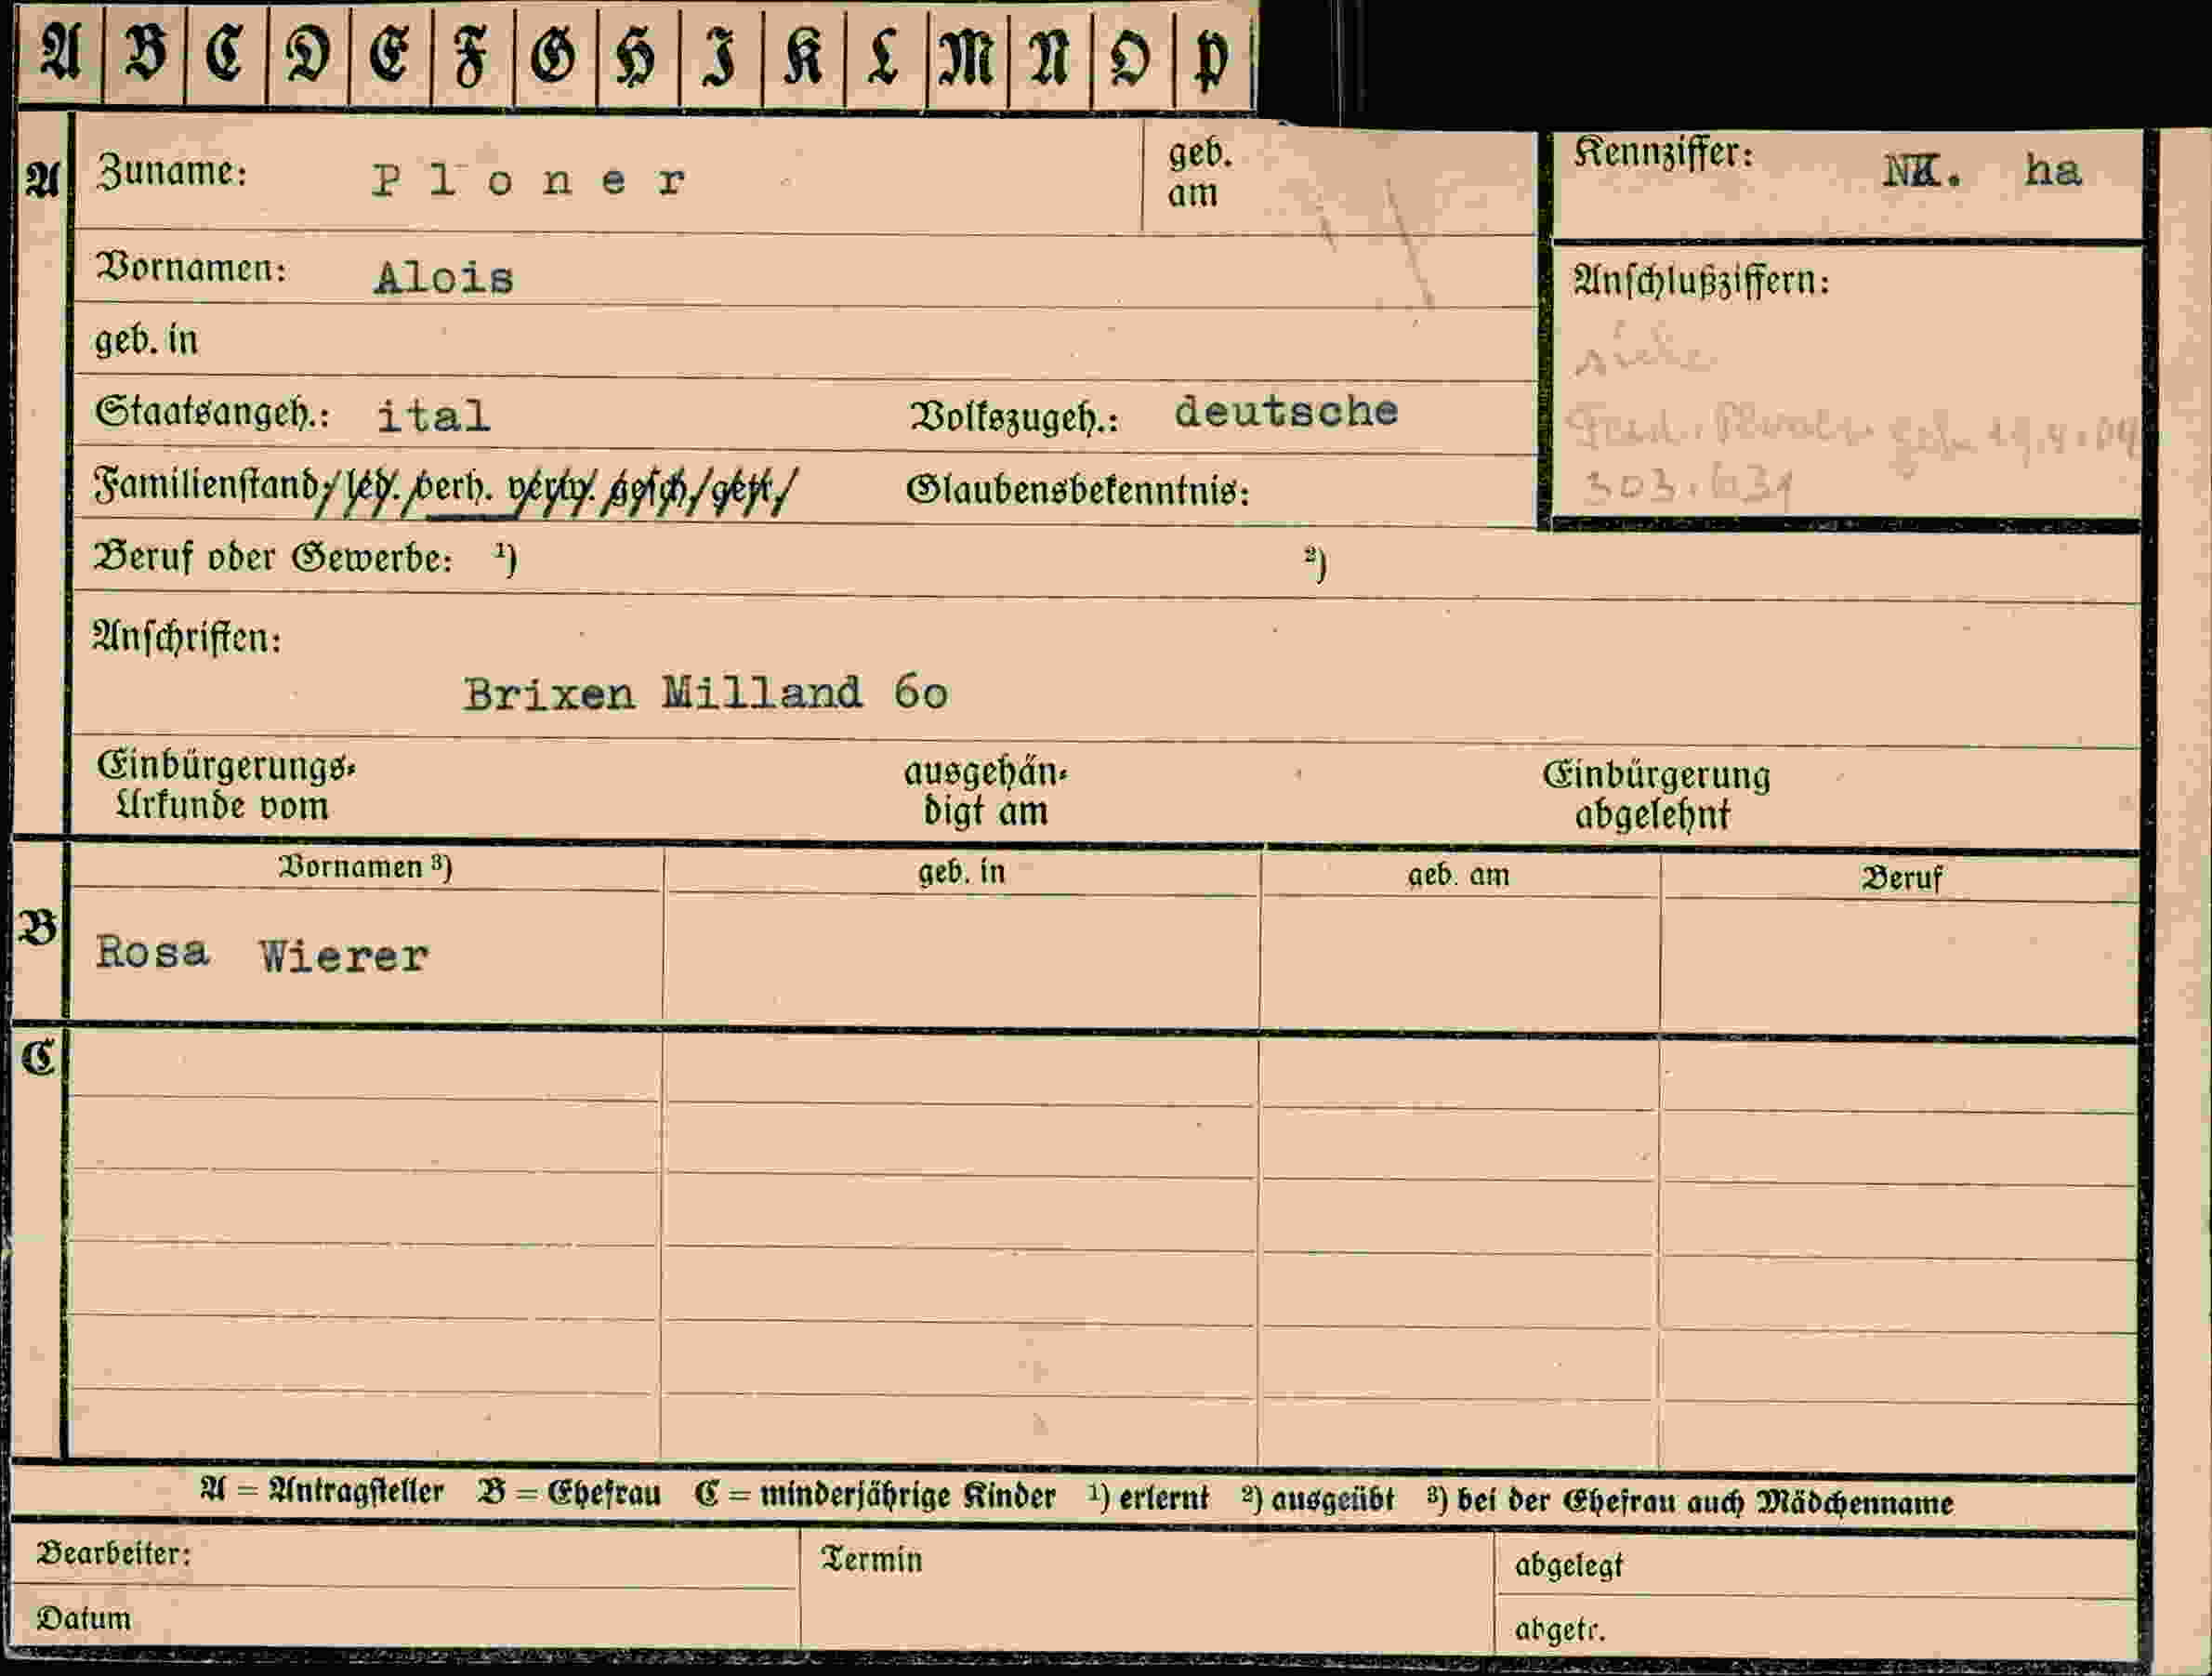 A B C D E F G H I K L M N O P
A Zuname: Ploner geb. am
Kennziffer: NK. ha
Vornamen: Alois
Anschlußziffern:
geb. in
siehe
Staatsangeh.: ital Volkszugeh.: deutsche
geb. 19.4.09
Familienstand: led. verh. verw. gesch. getr. Glaubensbekenntnis:
303.631
Beruf oder Gewerbe: ¹) ²)
Anschriften:
Brixen Milland 6o
Einbürgerungs-
Urkunde vom
ausgehän-
digt am
Einbürgerung
abgelehnt
Vornamen ³) geb. in geb. am Beruf
B Rosa Wierer
C
A = Antragsteller B = Ehefrau C = minderjährige Kinder ¹) erlernt ²) ausgeübt ³) bei der Ehefrau auch Mädchenname
Bearbeiter: Termin abgelegt
Datum abgetr.